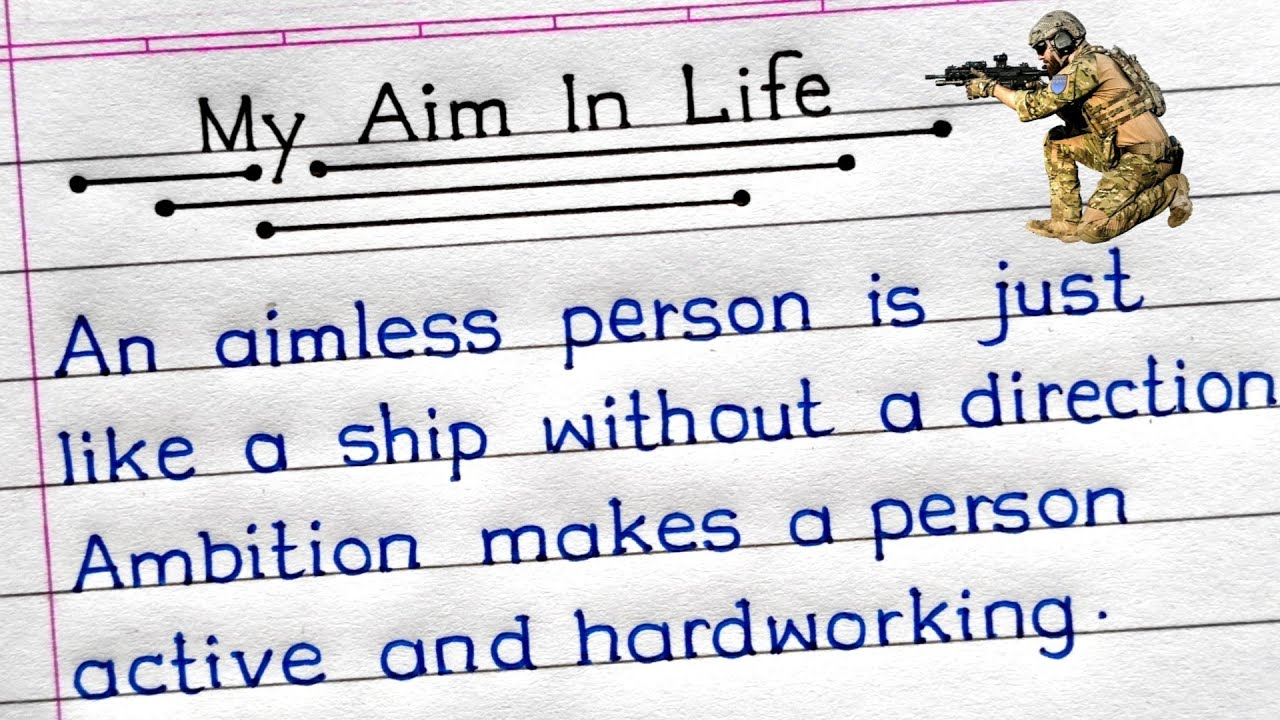 My Aim In Life
An aimless person is just
like a ship without a direction
Ambition makes a person
active and hardworking.